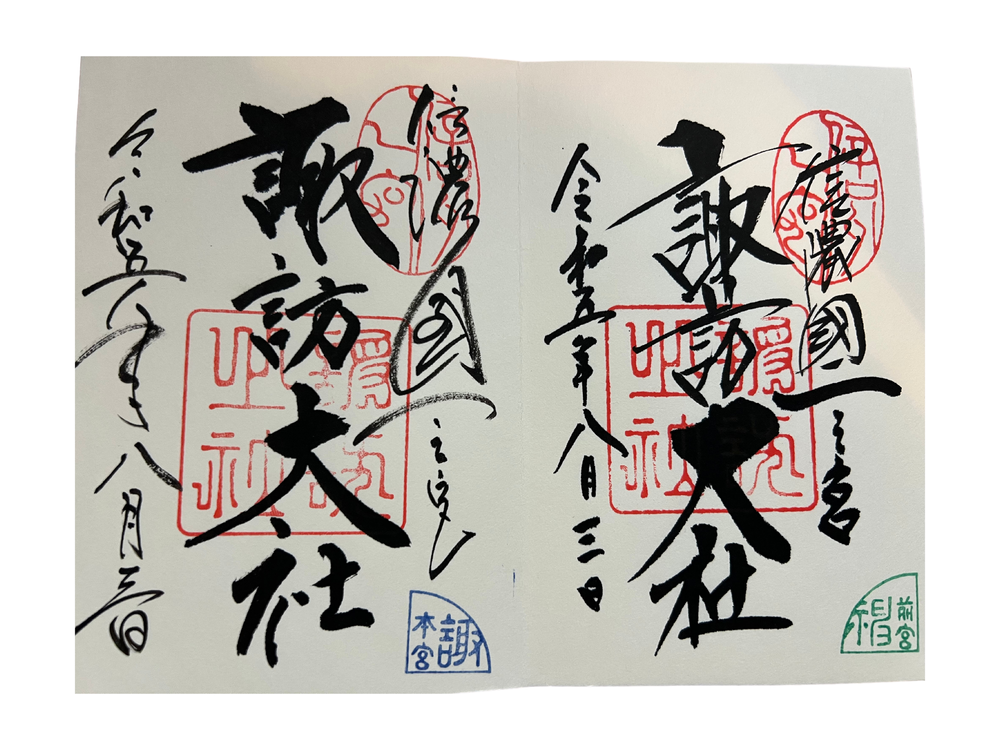 信濃國一之宮
諏訪大社
令和五年八月三日
前宮
信濃國一之宮
諏訪大社
令和五年八月三日
本宮
諏